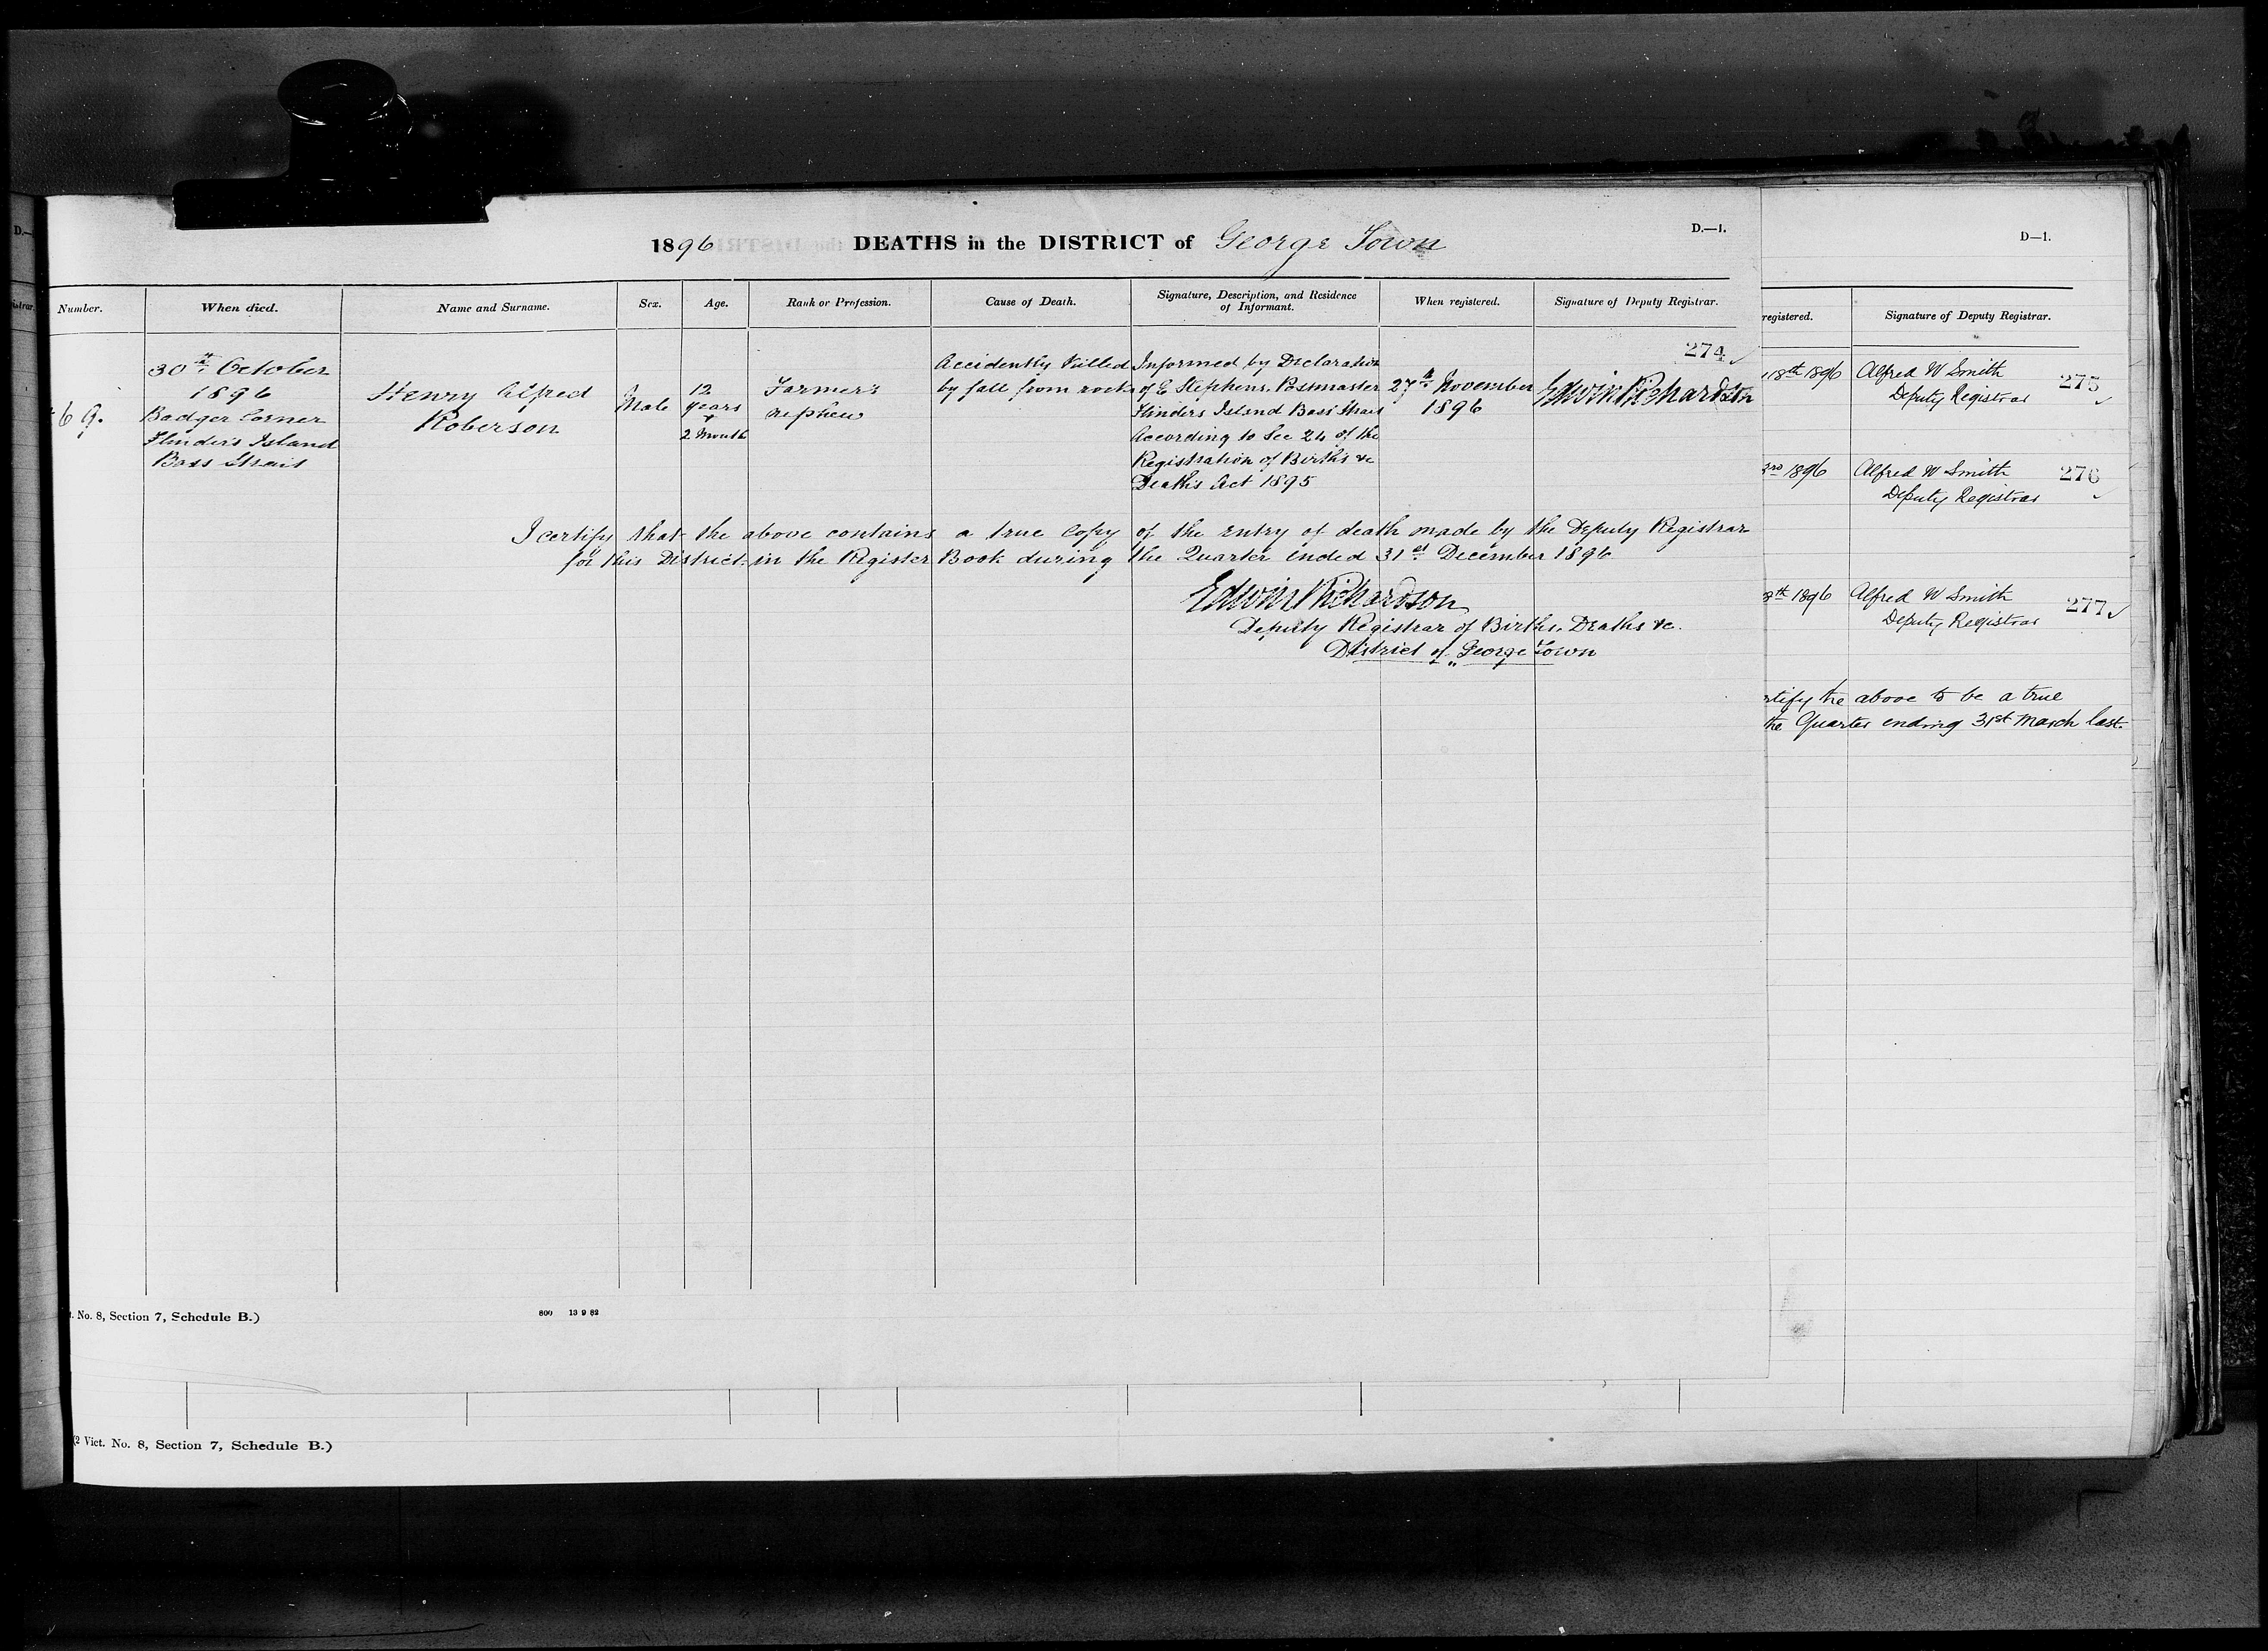 1896 DEATHS in the DISTRICT of George Town
D.—1.
Number.
When died.
Name and Surname.
Sex.
Age.
Rank or Profession.
Cause of Death.
Signature, Description, and Residence
of Informant.
When registered.
Signature of Deputy Registrar.
274
69.
30th October
1896
Badger Corner
Flinders Island
Bass Strait
Henry Alfred
Roberson
Male
12
years
+
2 Month
Farmer's
nephew
Accidently Killed
by fall from rock
Informed by Declaration
of E Stephens, Postmaster
Flinders Island Bass Strait
According to Sec 24 of the
Registration of Births &c
Deaths Act 1895
27th November
1896
Edwin Richardson
I certify that the above contains a true Copy of the entry of death made by the Deputy Registrar
for this District in the Register Book during the Quarter ended 31st December 1896
Edwin Richardson
Deputy Registrar of Births, Deaths &c.
District of George Town
No. 8, Section 7, Schedule B.)
800 13 9 82
(2 Vict. No. 8, Section 7, Schedule B.)
D—1.
registered.
Signature of Deputy Registrar.
18th 1896
Alfred W Smith
Deputy Registrar
275
3rd 1896
Alfred W Smith
Deputy Registrar
276
8th 1896
Alfred W Smith
Deputy Registrar
277
the above to be a true
the Quarter ending 31st March last.